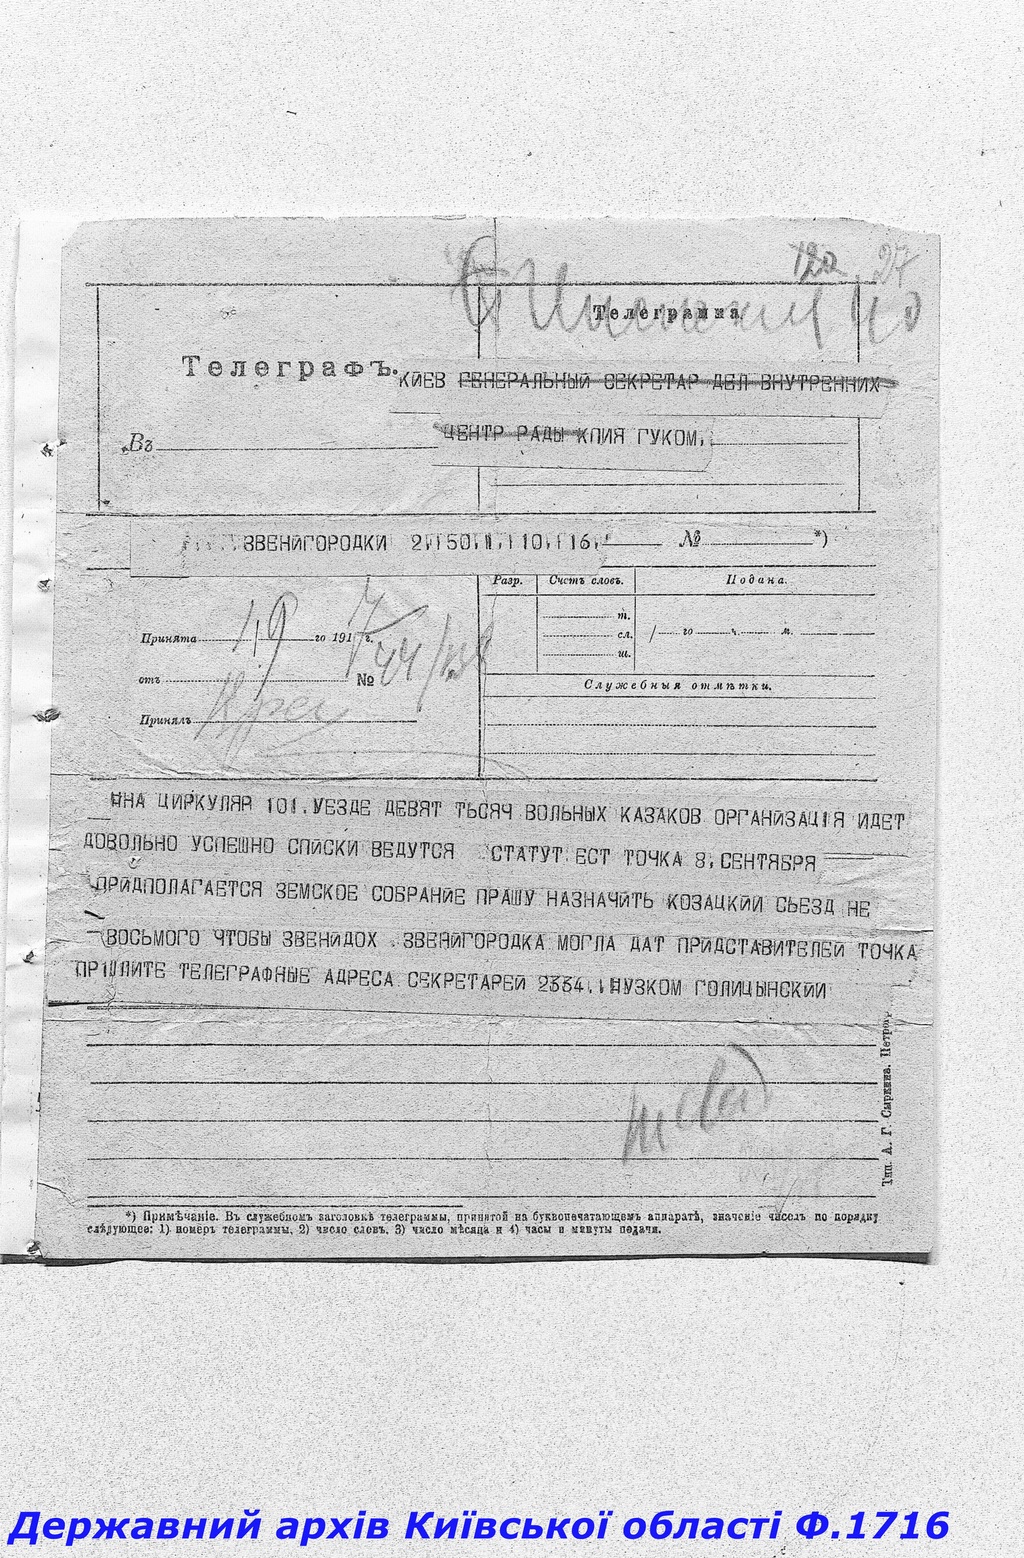 122 27
Телеграмма
Телеграфъ.
КИЕВ ГЕНЕРАЛЬНЫЙ СЕКРЕТАР ДЕЛ ВНУТРЕННИХ
Въ ЦЕНТР РАДЫ КПИЯ ГУКОМ,
ЗВЕНИГОРОДКИ 2, 150, 1, 10, 16, № *)
Разр. Счетъ словъ. Подана.
т.
Принята 1/9 го 1917 г. сл. / го ч. м.
отъ № 44/ ш.
Служебныя отмѣтки.
Принялъ
НА ЦИРКУЛЯР 101. УЕЗДЕ ДЕВЯТ ТЬСЯЧ ВОЛЬНЫХ КАЗАКОВ ОРГАНИЗАЦІЯ ИДЕТ
ДОВОЛЬНО УСПЕШНО СПИСКИ ВЕДУТСЯ СТАТУТ ЕСТ ТОЧКА 8, СЕНТЯБРЯ
ПРИДПОЛАГАЕТСЯ ЗЕМСКОЕ СОБРАНИЕ ПРАШУ НАЗНАЧИТЬ КОЗАЦКИЙ СЬЕЗД НЕ
ВОСЬМОГО ЧТОБЫ ЗВЕНИДОХ . ЗВЕНИГОРОДКА МОГЛА ДАТ ПРИДСТАВИТЕЛЕЙ ТОЧКА
ПРИШЛИТЕ ТЕЛЕГРАФНЫЕ АДРЕСА СЕКРЕТАРЕЙ 2334. НУЗКОМ ГОЛИЦЫНСКИЙ
Тип. А. Г. Сыркина. Петрог
*) Примѣчаніе. Въ служебномъ заголовкѣ телеграммы, принятой на буквопечатающемъ аппаратѣ, значеніе чиселъ по порядку
слѣдующее: 1) номеръ телеграммы, 2) число словъ, 3) число мѣсяца и 4) часы и минуты подачи.
Державний архів Київської області Ф.1716